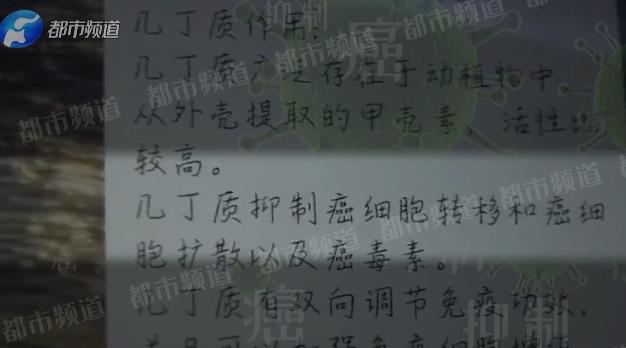 都市频道
几丁质作用:
几丁质广泛存在于动植物中
从外壳提取的甲壳素,活性比
较高。
几丁质抑制癌细胞转移和癌细
胞扩散以及癌毒素。
几丁质有双向调节免疫功效,
抑制
癌
癌
癌
抑制
都市频道
都市频道
都市频道
都市频道
都市频道
都市频道
都市频道